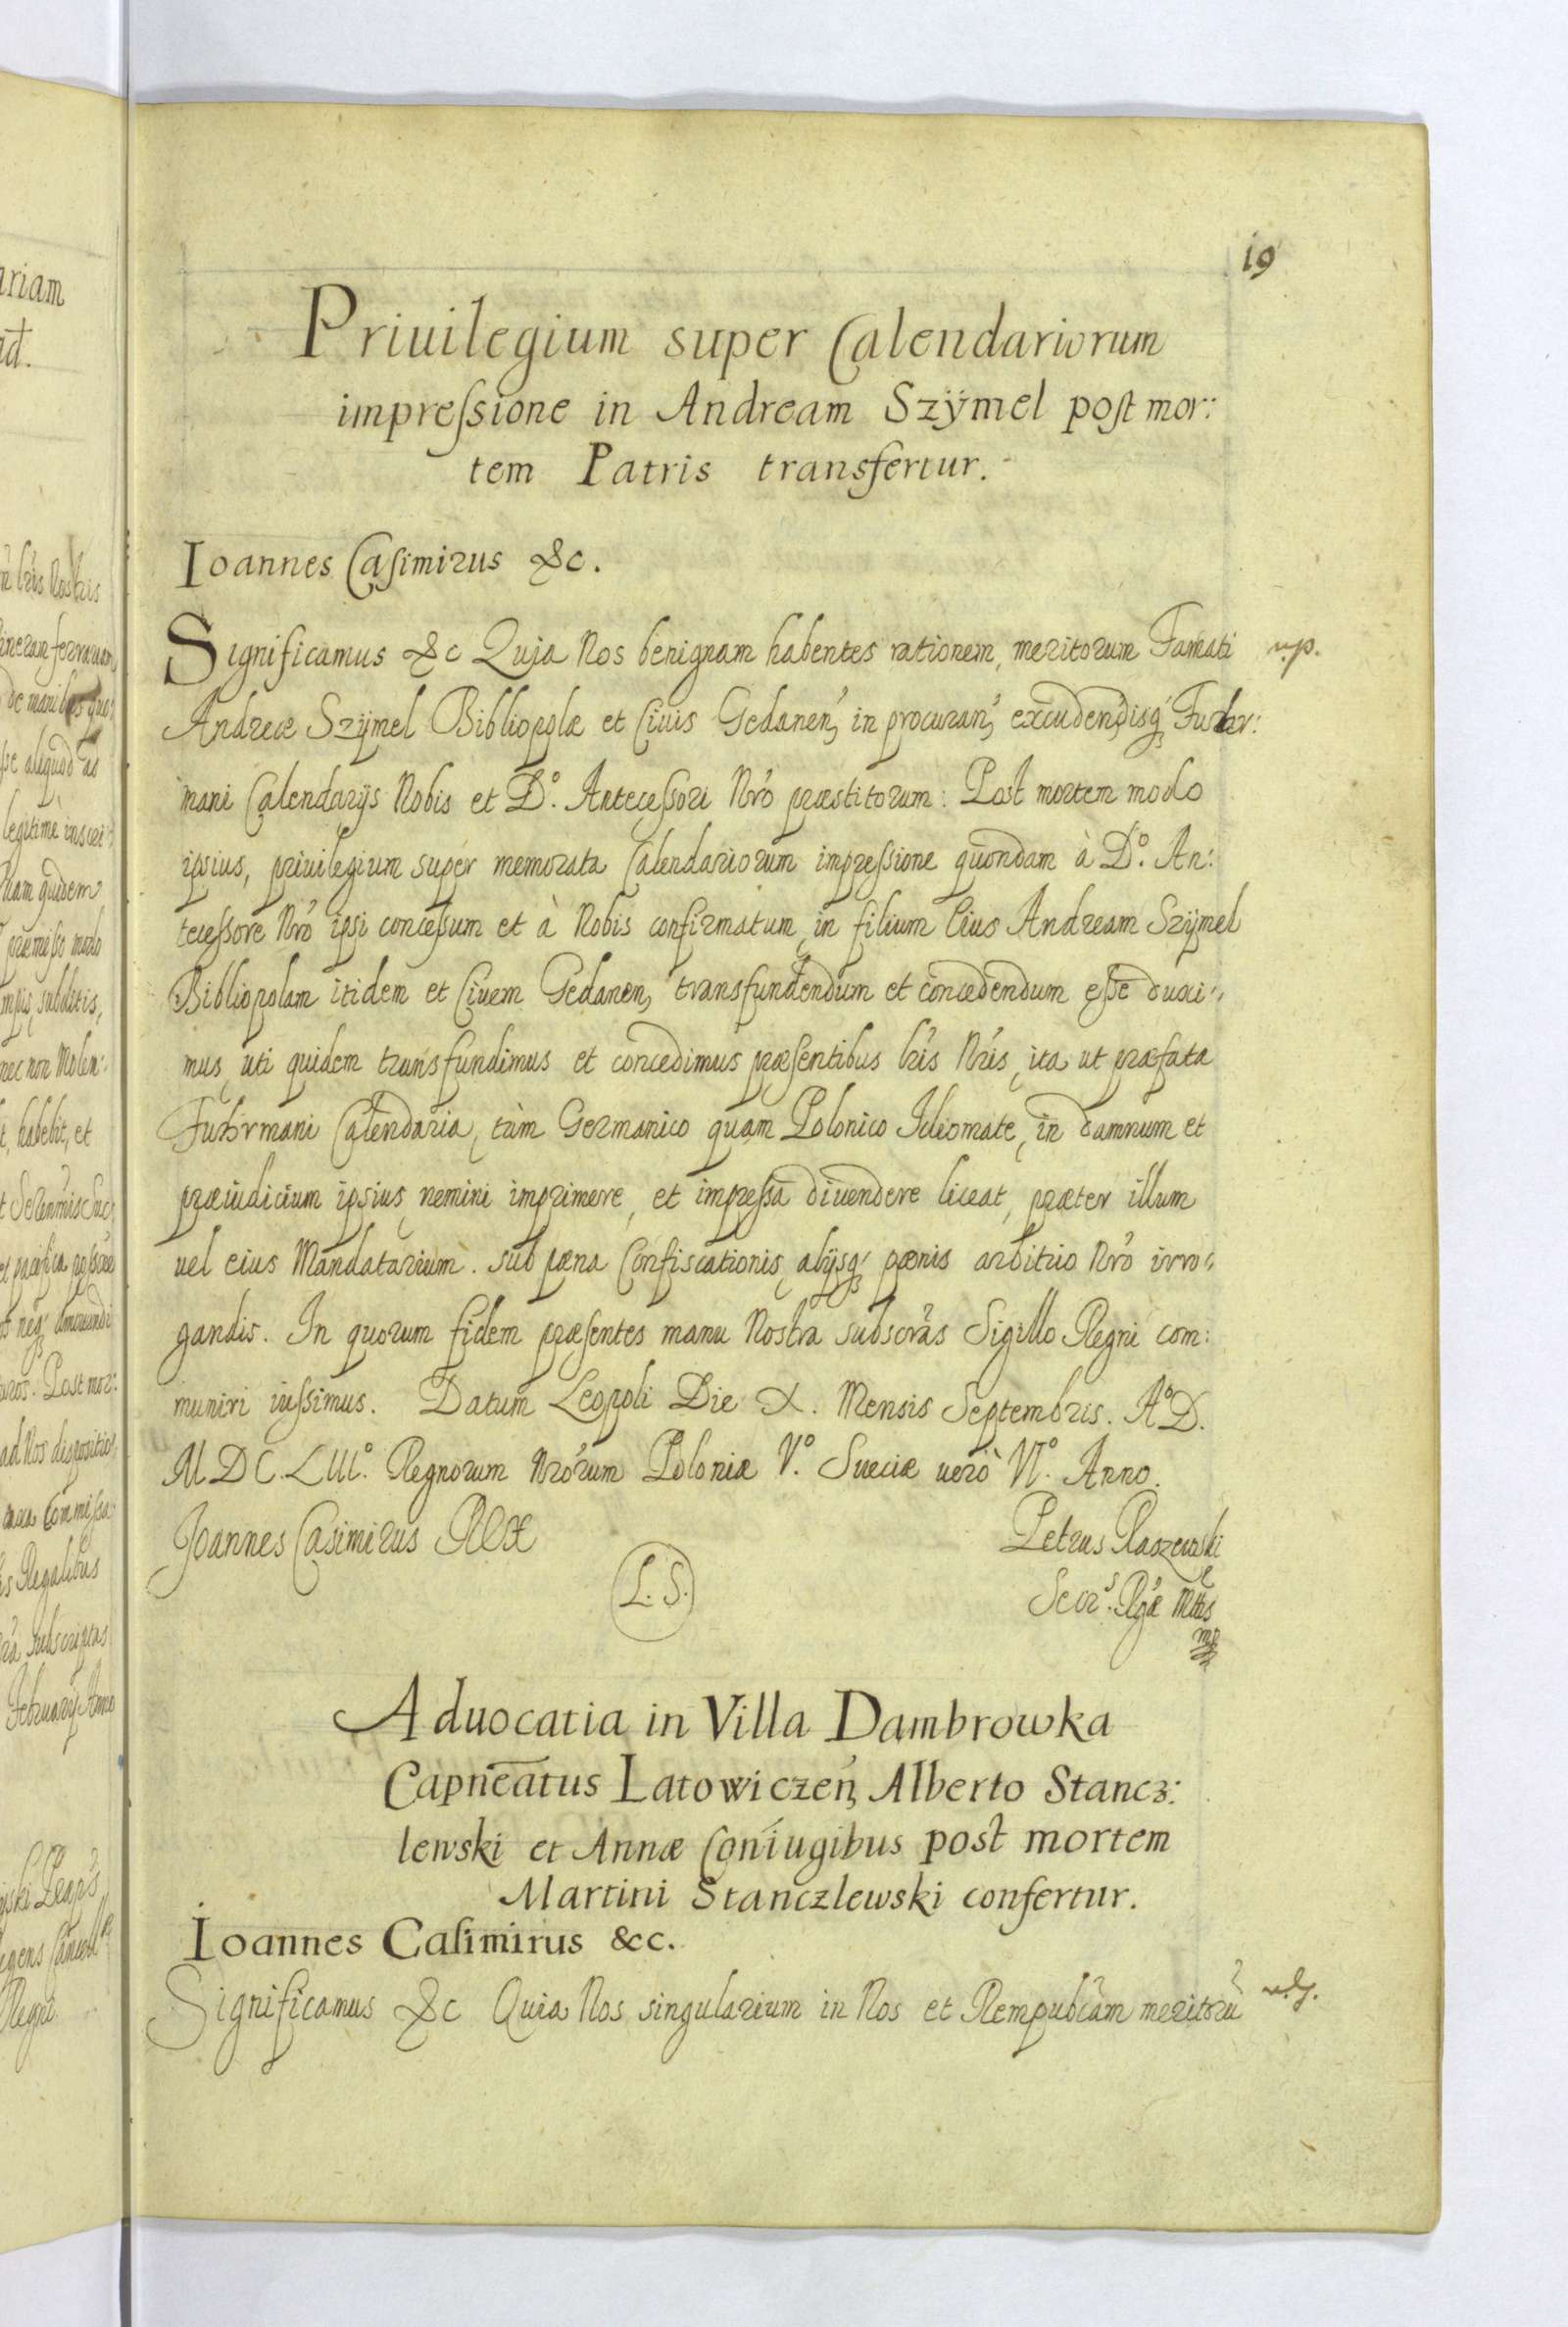 19
Priuilegium super Calendariorum
impreſsione in Andream Szÿmel poſt mor:
tem Patris transfertur.
Ioannes Caſimirus &c.
Significamus &c Quia Nos benignam habentes rationem, meritorum Famati
Andreæ Szÿmel Bibliopolæ et Ciuis Gedanen, in procuran, excudendisq, Fuhr:
mani Calendarÿs Nobis et D°. Anteceſsori Nrõ præstitorum: Post mortem modo
ipsius, priuilegium super memorata Calendariorum impreſsione quondam à D°. An:
teceſsore Nrõ ipsi conceſsum et à Nobis confirmatum, in filium Eius Andream Szÿmel
Bibliopolam itidem et Ciuem Gedanen, transfundendum et concedendum eſse duxi:
mus, uti quidem transfundimus et concedimus præſentibus lris Nris, ita ut præfata
Fuhrmani Calendaria, tàm Germanico quam Polonico Idiomate, in damnum et
præiudicium ipsius, nemini imprimere, et impreſsa diuendere liceat, præter illum
uel eius Mandatarium. sub pæna Confiscationis, alÿsq, pœnis arbitrio Nrõ irro:
gandis. In quorum fidem præſentes manu Nostra subscrãs Sigillo Regni com:
muniri iuſsimus. Datum Leopoli Die X. Mensis Septembris. A° D.
M DC. LIII°. Regnorum Nrõrum Poloniæ V°. Sueciæ uerò VI°. Anno.
Joannes Casimirus REX
Petrus Raszewski
L. S.
Secrˢ. Rgæ Mttis
mp
Aduocatia in Villa Dambrowka
Capneatus Latowiczen, Alberto Stancz:
lewski et Annæ Coniugibus post mortem
Martini Stanczlewski confertur.
Ioannes Caſimirus &c.
Significamus &c Quia Nos singularium in Nos et Rempubcam meritorũ